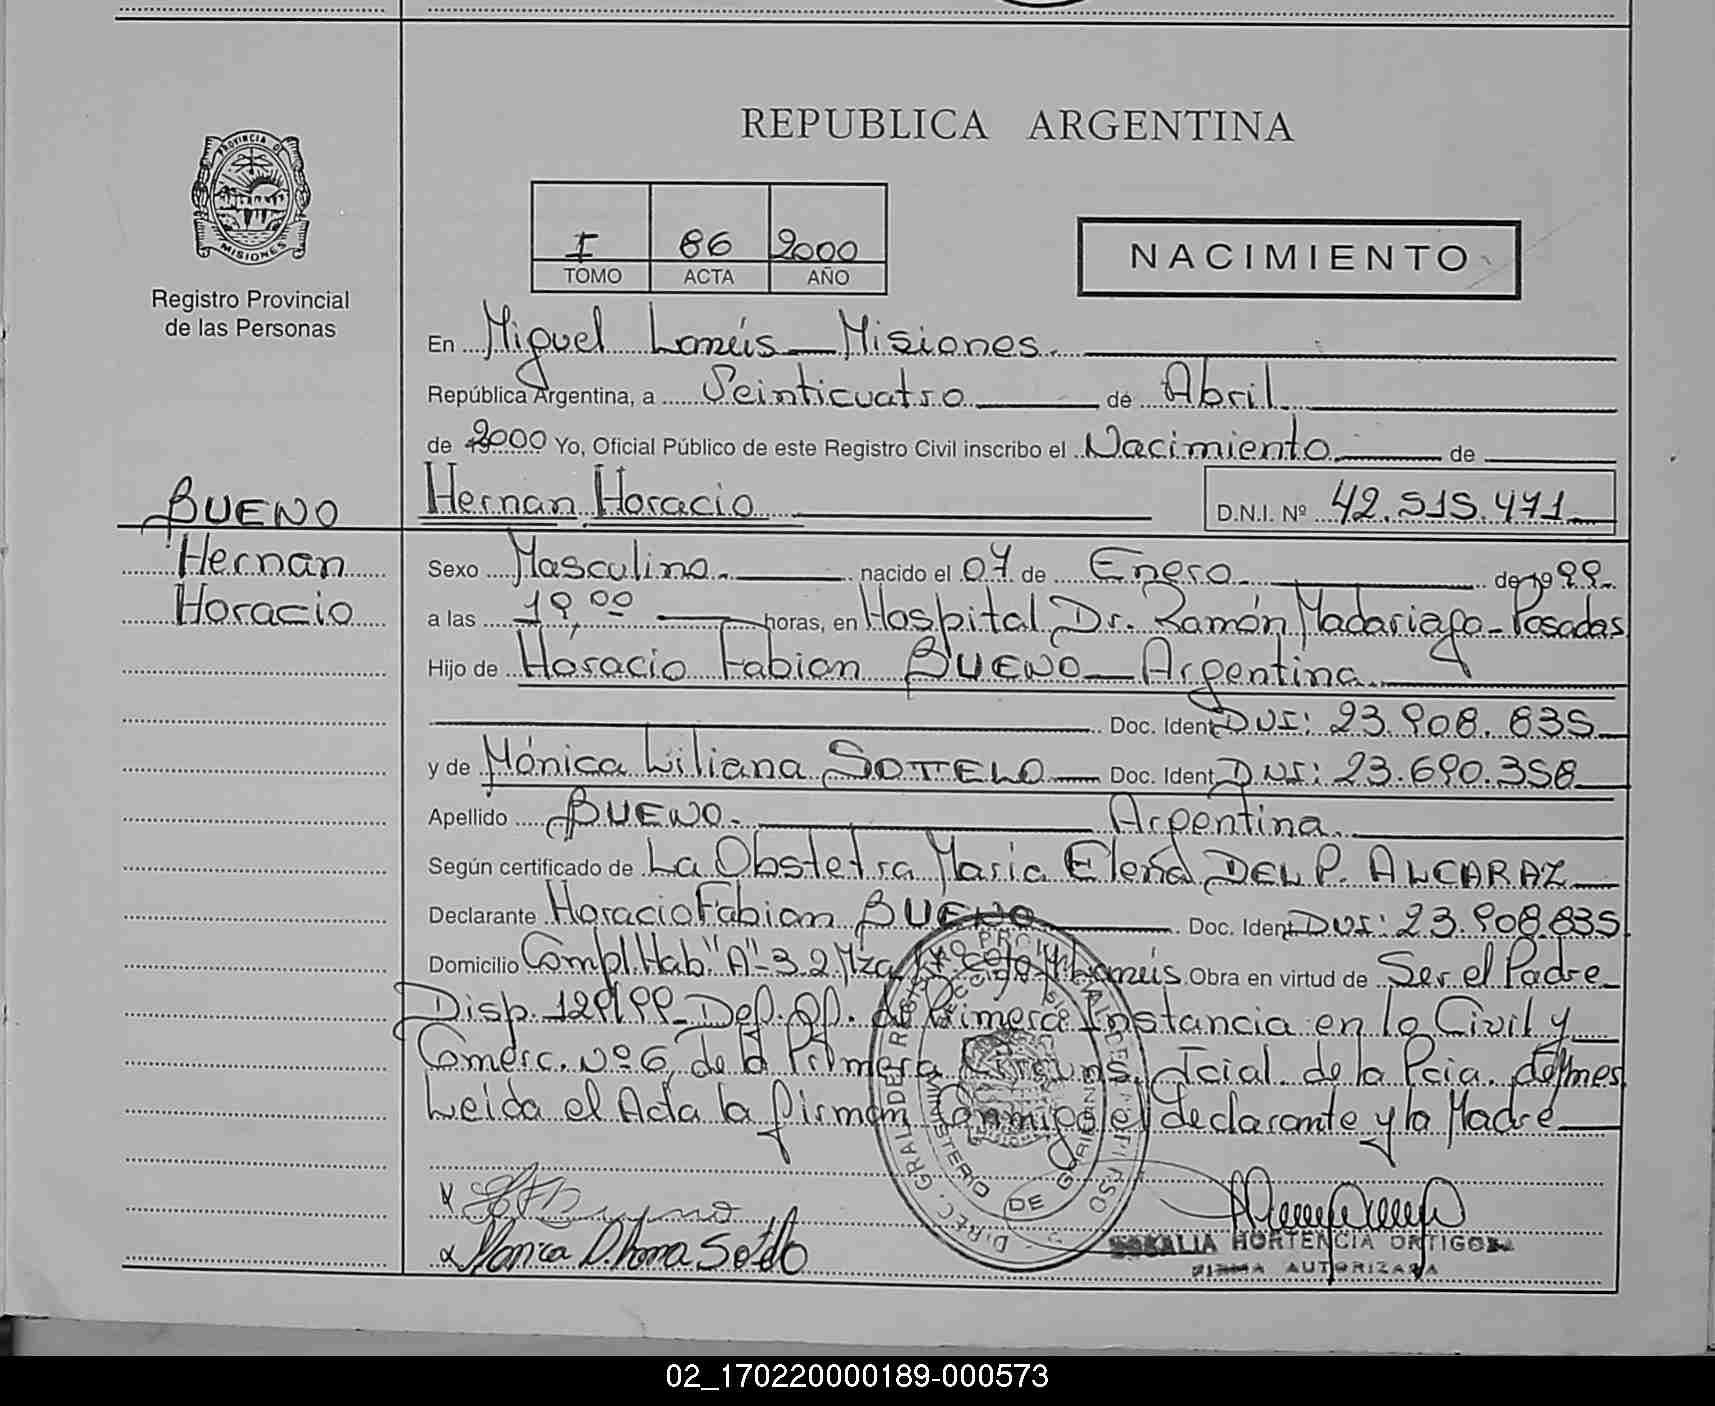 REPUBLICA ARGENTINA
PROVINCIA DE MISIONES
Registro Provincial
de las Personas
I 86 2000
TOMO ACTA AÑO
NACIMIENTO
En Miguel Lanús - Misiones.
República Argentina, a Veinticuatro de Abril
de 2000 Yo, Oficial Público de este Registro Civil inscribo el Nacimiento de
BUENO
Hernan
Horacio
Hernan Horacio D.N.I. Nº 42.515.471
Sexo Masculino. nacido el 07 de Enero de 1999.
a las 19,00 horas, en Hospital Dr. Ramón Madariaga - Posadas
Hijo de Horacio Fabian BUENO - Argentina.
Doc. Ident DNI: 23.908.835
y de Mónica Liliana SOTTELO Doc. Ident DNI: 23.690.358
Apellido BUENO. Argentina.
Según certificado de La Obstetra Maria Elena DEL P. ALCARAZ
Declarante Horacio Fabian BUENO Doc. Ident DNI: 23.908.835
Domicilio Compl. Hab. "A" - 32 Mza Lanús Obra en virtud de Ser el Padre
Disp. 129/99 - Def. Of. de Primera Instancia en lo Civil y
Comerc. Nº 6, de la Primera Circuns. Jcial. de la Pcia. de Mnes
Leida el Acta la firman Conmigo el declarante y la Madre
DIREC. GRAL. DE REGISTRO
MINISTERIO DE GOBIERNO
HORTENCIA ORTIGOZA
FIRMA AUTORIZADA
02_170220000189-000573